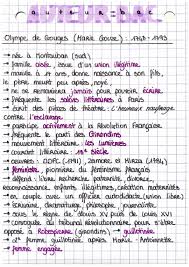 auteur bac
Olympe de Gouges (Marie Gouze) : 1748 - 1793
→ née à Montauban (sud)
→ famille aisée, issue d'un union illégitime
→ mariée à 17 ans, donne naissance à son fils,
le père meurt peu après,
→ ne se remariera jamais pour pouvoir écrire
→ fréquente les salons littéraires à Paris
→ écrit des pièces de théâtre : L'heureux naufrage
contre l'esclavage
→ participe activement à la Révolution Française
→ fréquente le parti des Girondins
→ mouvement littéraire : les lumières
→ contexte littéraire : 18e siècle
→ œuvres : DDFC (1791), Zamore et Mirza (1784)
→ féministe, pionnière du féminisme français
→ défend : libre recherche paternité, divorce,
reconnaissance enfants illégitimes, création maternités
→ en couple avec un officier
→ écrivaine, dramaturge, philosophe,
→ sous le règne de Louis XV puis de Louis XVI
→ convoquée au tribunal révolutionnaire, pour s'être
opposé à Robespierre (girondins) → guillotinée
→ 2e femme guillotinée après Marie-Antoinette
→ femme engagée